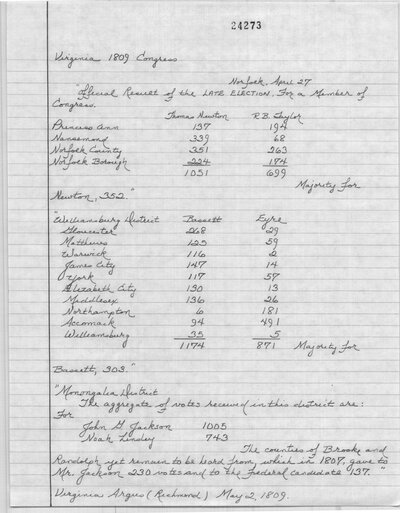 24273
Virginia 1809 Congress
Norfolk, April 27
"Official Result of the LATE ELECTION, For a Member of
Congress.
Thomas Newton R.B. Taylor
Princess Ann 137 194
Nansemond 339 68
Norfolk County 351 263
Norfolk Borough 224 174
1051 699
Majority for
Newton, 352."
"Williamsburg District Bassett Eyre
Gloucester 268 29
Matthews 125 59
Warwick 116 2
James City 147 14
York 117 57
Elizabeth City 130 13
Middlesex 136 26
Northampton 6 181
Accomack 94 491
Williamsburg 35 5
1174 871 Majority for
Bassett, 303."
"Monongalia District
The aggregate of votes received in this district are:
For
John G Jackson 1005
Noah Linsley 743
The counties of Brooke and
Randolph yet remain to be heard from, which in 1807, gave to
Mr. Jackson 230 votes and to the Federal candidate 137."
Virginia Argus (Richmond) May 2, 1809.